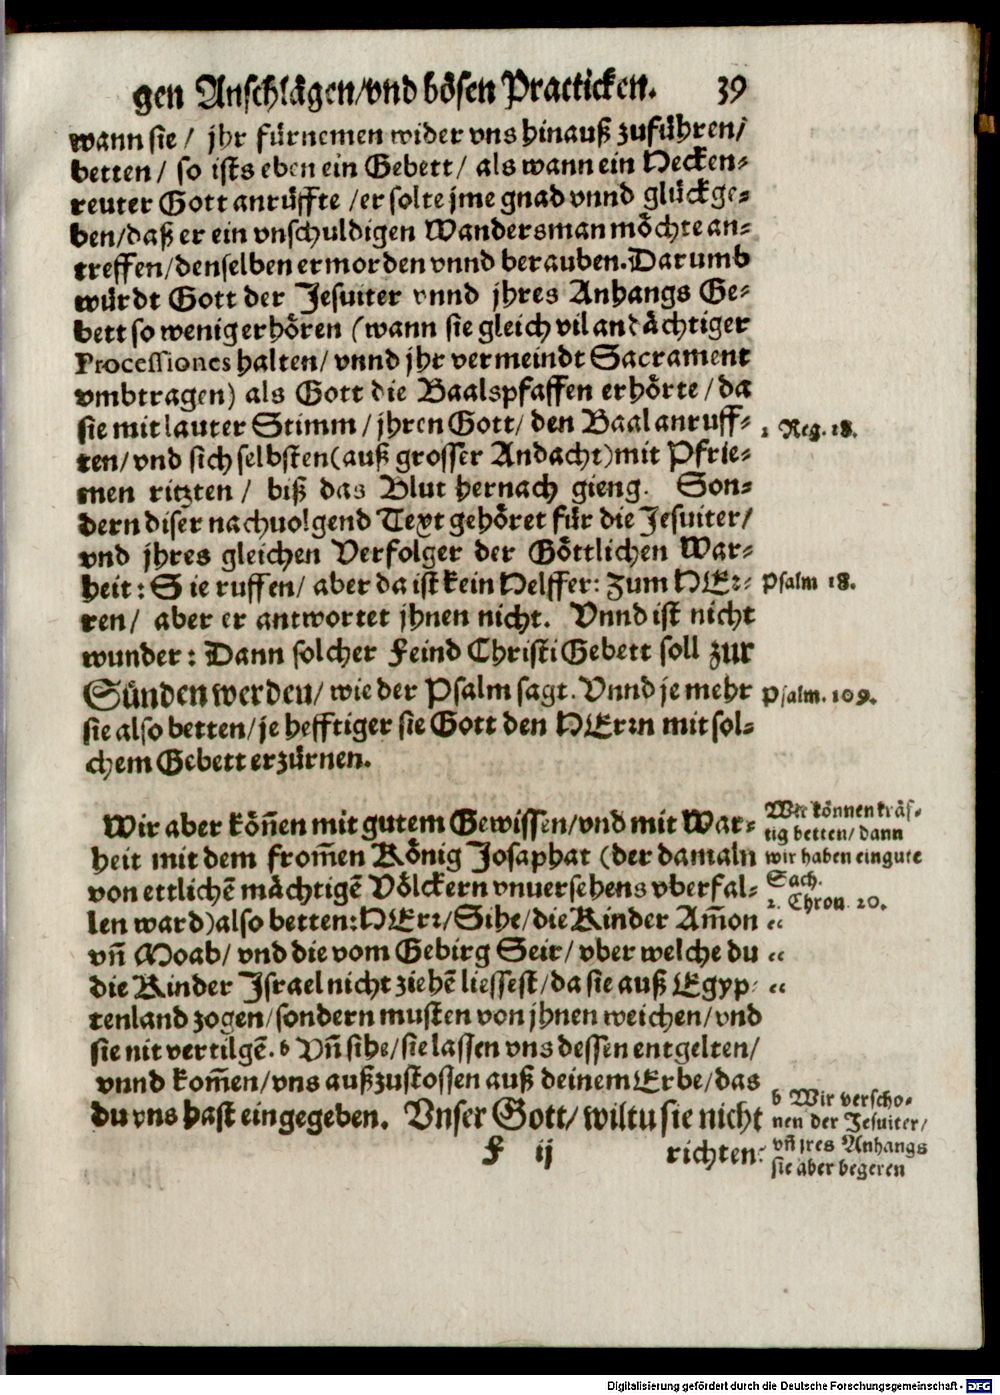 gen Anschlägen/vnd bösen Practicken. 39
wann sie / jhr fürnemen wider vns hinauß zuführen/
betten / so ists eben ein Gebett / als wann ein Hecken-
reuter Gott anrüffte /er solte jme gnad vnnd glück ge-
ben/daß er ein vnschuldigen Wandersman möchte an-
treffen/denselben ermorden vnnd berauben. Darumb
würdt Gott der Jesuiter vnnd jhres Anhangs Ge-
bett so wenig erhören (wann sie gleich vil andächtiger
Processiones halten/ vnnd jhr vermeindt Sacrament
vmbtragen) als Gott die Baalspfaffen erhörte / da
sie mit lauter Stimm / jhren Gott / den Baal anruff-
1. Reg. 18.
ten/ vnd sich selbsten (auß grosser Andacht) mit Pfrie-
men ritzten / biß das Blut hernach gieng. Son-
dern diser nachuolgend Text gehöret für die Jesuiter/
vnd jhres gleichen Verfolger der Göttlichen War-
heit: Sie ruffen/ aber da ist kein Helffer: Zum HEr-
Psalm 18.
ren/ aber er antwortet jhnen nicht. Vnnd ist nicht
wunder: Dann solcher Feind Christi Gebett soll zur
Sünden werden/ wie der Psalm sagt. Vnnd je mehr
Psalm. 109.
sie also betten/ je hefftiger sie Gott den HErrn mit sol-
chem Gebett erzürnen.
Wir aber köñen mit gutem Gewissen/vnd mit War-
heit mit dem from̃en König Josaphat (der damaln
von ettlichē mächtigē Völckern vnuersehens vberfal-
len ward) also betten: HErr/ Sihe/ die Kinder Am̃on
vñ Moab/ vnd die vom Gebirg Seir/ vber welche du
die Kinder Israel nicht ziehē liessest/ da sie auß Egyp-
tenland zogen/ sondern musten von jhnen weichen/ vnd
sie nit vertilgē. b Vñ sihe/ sie lassen vns dessen entgelten/
vnnd kom̃en/ vns außzustossen auß deinem Erbe/ das
du vns hast eingegeben. Vnser Gott/ wiltu sie nicht
Wir können kräf-
tig betten/ dann
wir haben ein gute
Sach.
2. Chron. 20.
“
“
“
b Wir verscho-
nen der Jesuiter/
vñ jres Anhangs
sie aber begeren
F ij richten:
Digitalisierung gefördert durch die Deutsche Forschungsgemeinschaft - DFG